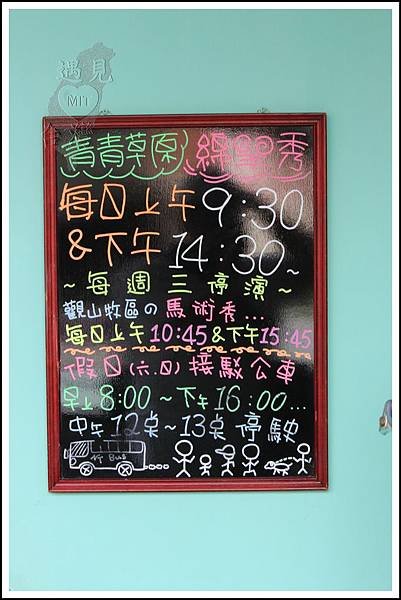 遇見
MIT
青青草原 綿羊秀
每日上午9:30
&下午14:30~
~每週三停演~
觀山牧區の馬術秀...
每日上午10:45&下午15:45
假日(六.日)接駁公車
早上8:00~下午16:00...
中午12点~13点停駛
Bus